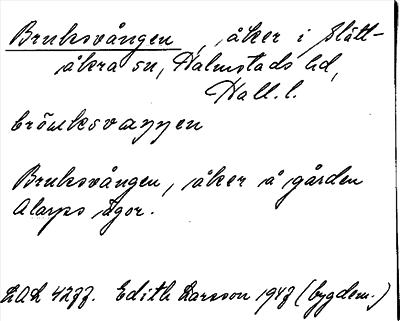 Bruksvången, åker i Slätt-
åkra sn, Halmstads hd,
Hall. l.
Bruksvången, åker å gården
Alarps ägor.
LAL 4277. Edith Larsson 1947 (bygdem.)